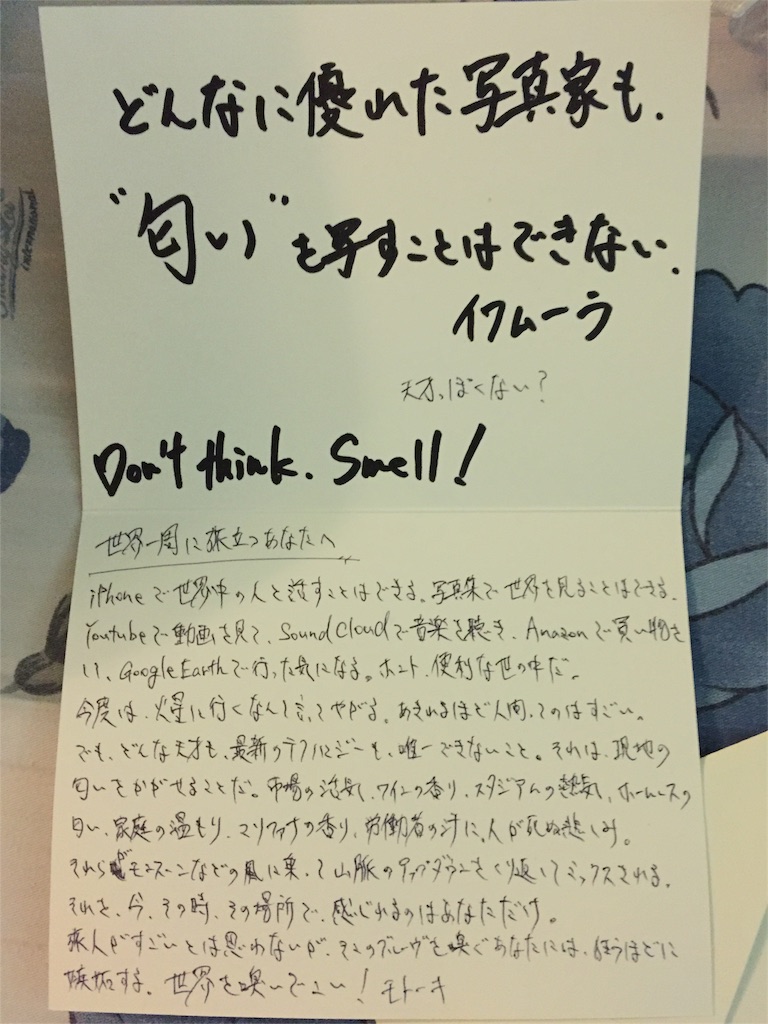 どんなに優れた写真家も、
“匂い”を写すことはできない。
イワムーラ
天才っぽくない？
Don't think. Smell!
世界一周に旅立つあなたへ
iPhoneで世界中の人と話すことはできる。写真集で世界を見ることはできる。
Youtubeで動画を見て、SoundCloudで音楽を聴き、Amazonで買い物を
し、Google Earthで行った気になる。ホント、便利な世の中だ。
今度は、火星に行くなんて言ってやがる。あきれるほど人間ってのはすごい。
でも、どんな天才も、最新のテクノロジーも、唯一できないこと。それは、現地の
匂いをかがせることだ。市場の活気、ワインの香り、スタジアムの熱気、ホームレスの
匂い、家庭の温もり、マリファナの香り、労働者の汗に、人が死ぬ悲しみ。
それらがモンスーンなどの風に乗って山脈のアップダウンをくり返してミックスされる。
それを、今、その時、その場所で、感じれるのはあなただけ。
旅人がすごいとは思わないが、そのグルーヴを嗅ぐあなたには、ほうほどに
嫉妬する。世界を嗅いでこい！ モトーキ